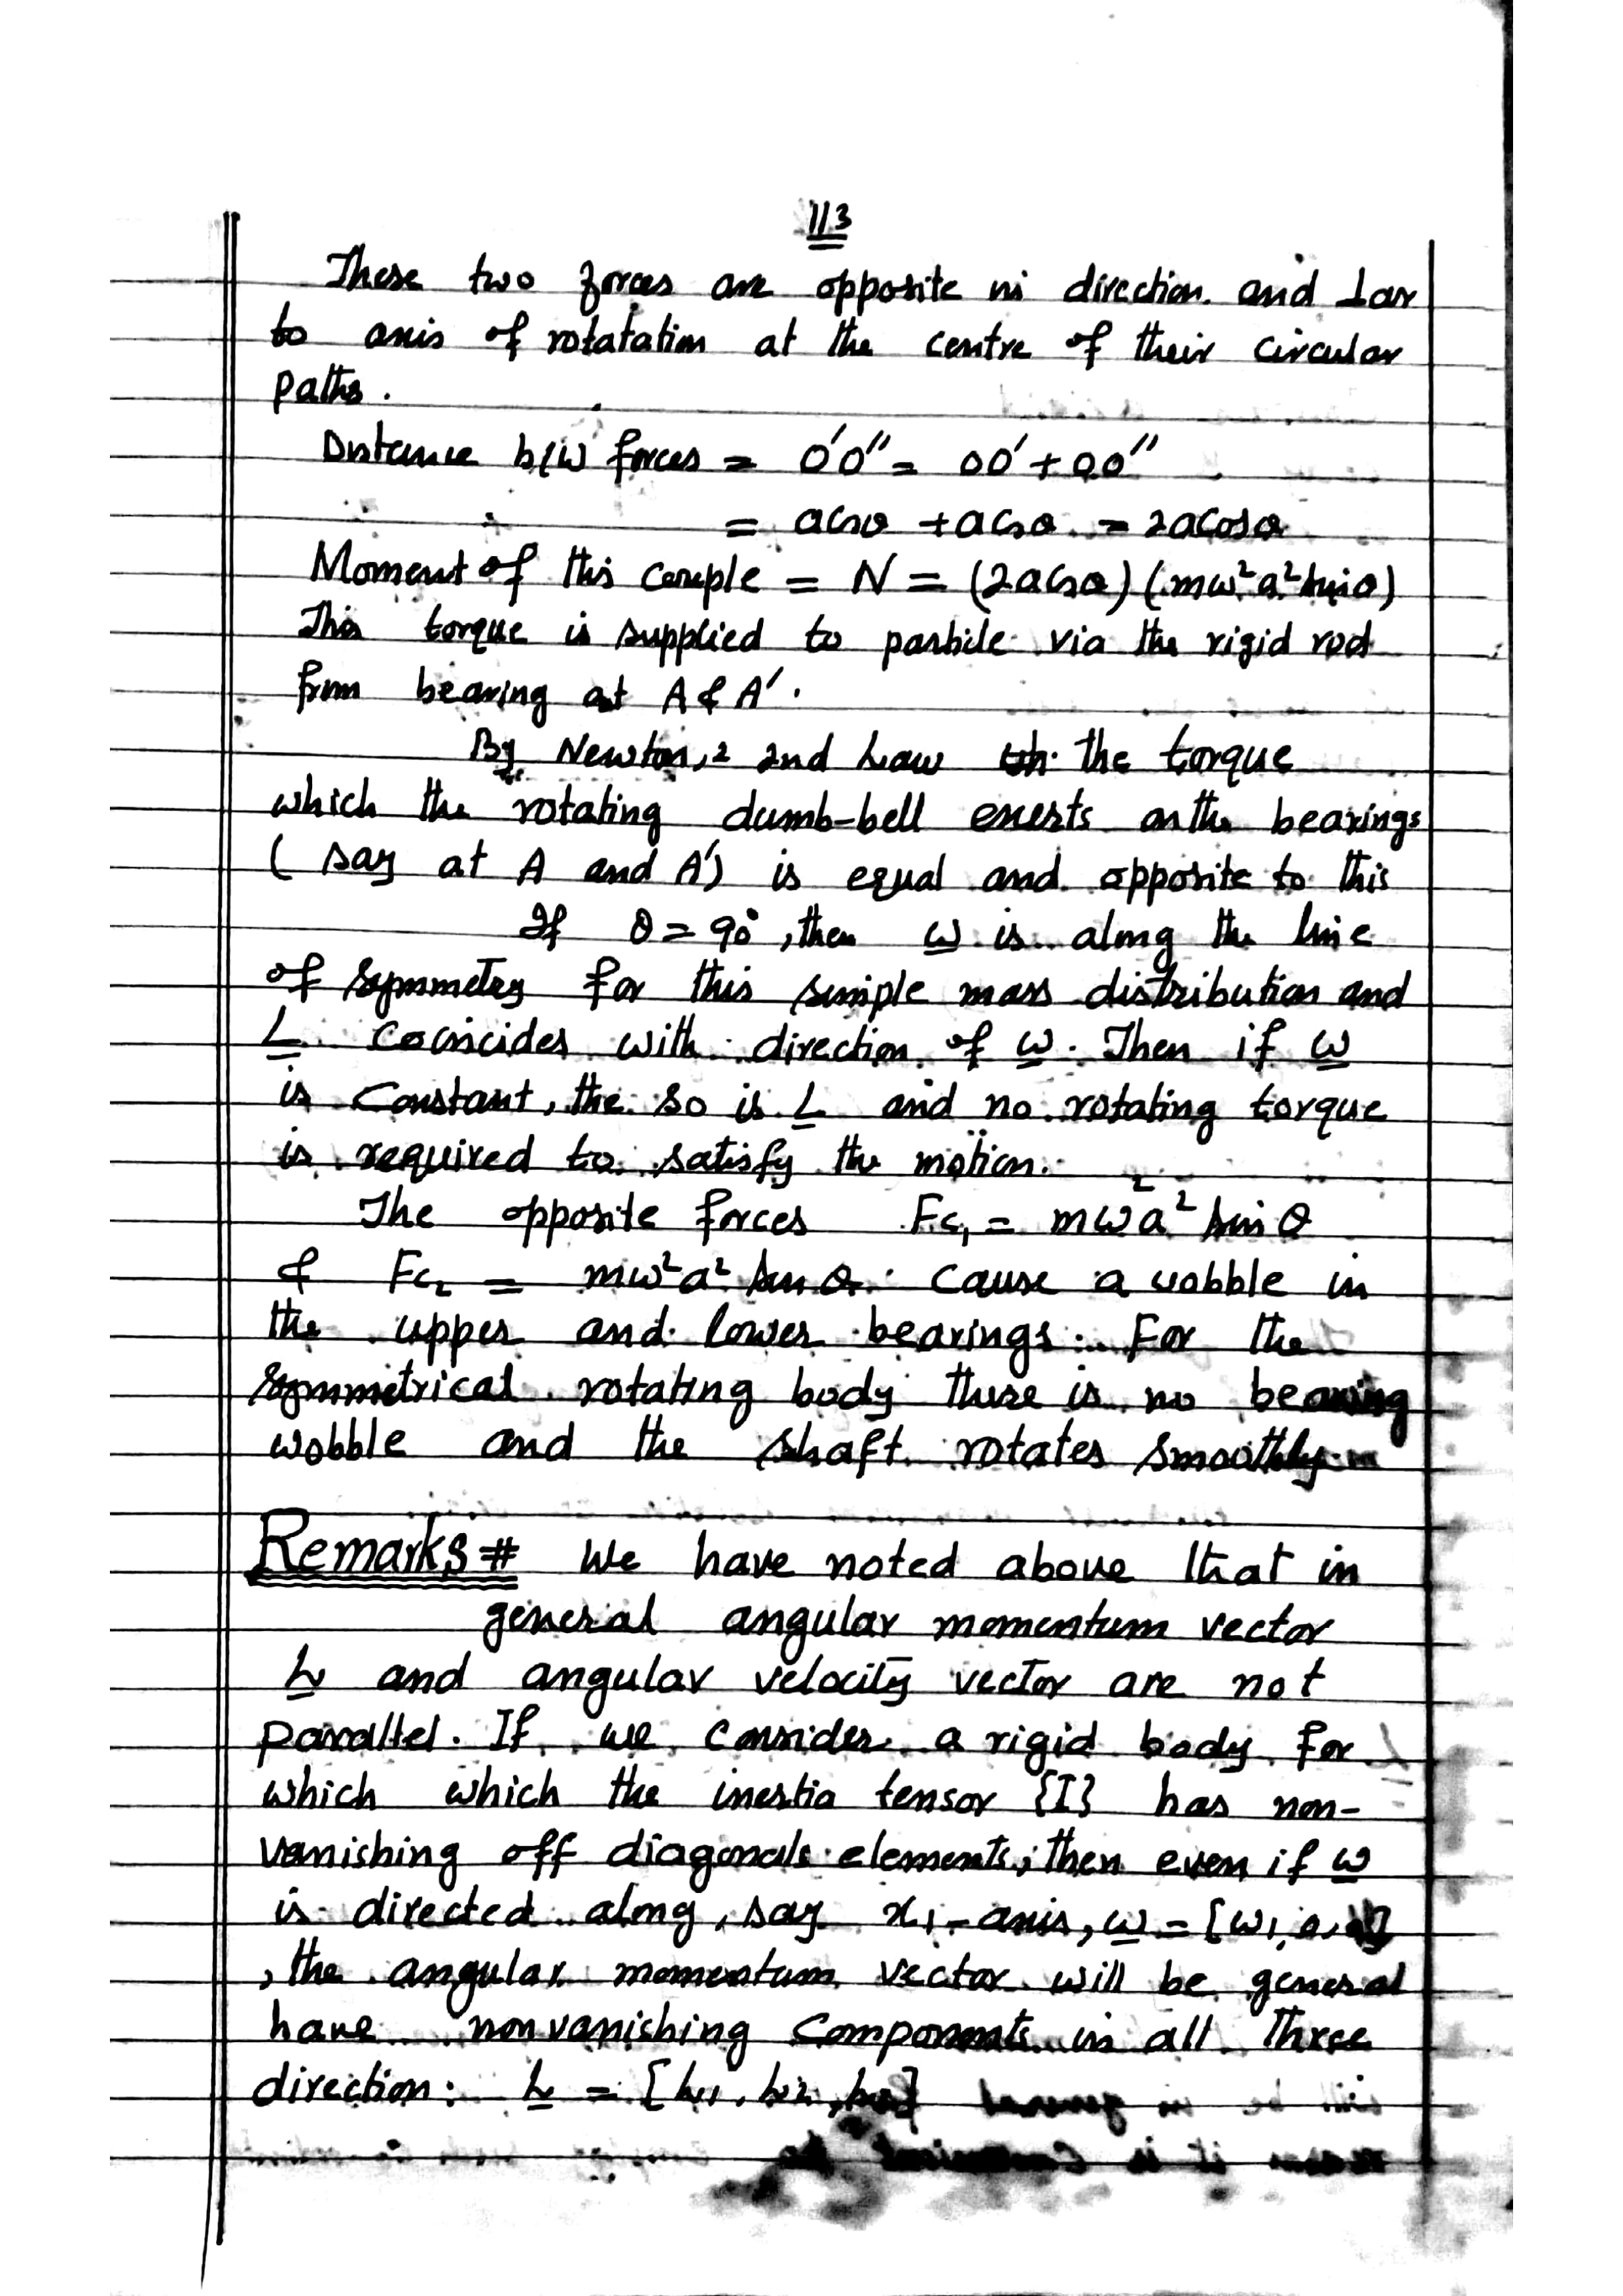 113
These two forces are opposite in direction. and ⊥ar
to axis of rotatation at the centre of their circular
paths.
Distance b/w forces = O'O" = OO' + OO"
= acosθ + acosθ = 2acosθ
Moment of this couple = N = (2acosθ) (mω²a²sinθ)
This torque is supplied to partcile via the rigid rod
from bearing at A & A'.
By Newton,s 2nd Law the torque
which the rotating dumb-bell exerts on the bearings
( say at A and A') is equal and opposite to this
If θ = 90°, then ω is along the line
of symmetry for this simple mass distribution and
L coincides with direction of ω. Then if ω
is constant, the so is L and no rotating torque
is required to satisfy the motion.
The opposite forces Fc₁ = mω²a² sin θ
& Fc₂ = mω²a² sin θ. cause a wobble in
the upper and lower bearings. For the
symmetrical rotating body there is no bearing
wobble and the shaft rotates smoothly
Remarks # We have noted above that in
general angular momentum vector
L and angular velocity vector are not
parallel. If we consider a rigid body for
which which the inertia tensor {I} has non-
vanishing off diagonals elements, then even if ω
is directed along, say x₁-axis, ω = [ω₁, 0, 0]
, the angular momentum vector will be general
have nonvanishing components in all three
direction: L = [L₁, L₂, L₃]